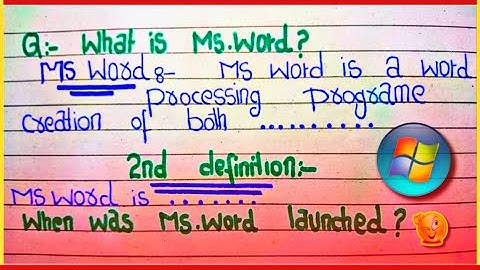 Q:- What is Ms.Word?
Ms Word:- Ms Word is a word
Processing Programe
creation of both .........
2nd definition:-
Ms Word is .......
When was Ms.Word launched?